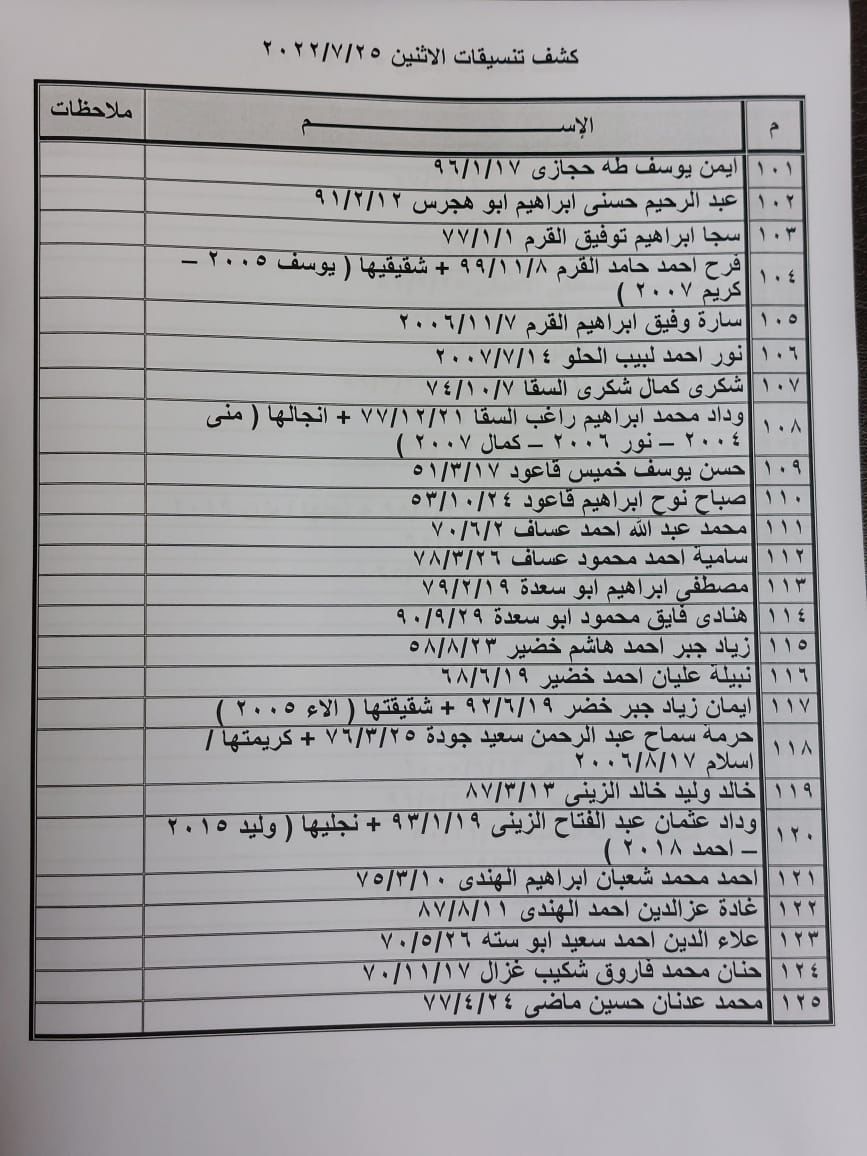 كشف تنسيقات الاثنين ٢٠٢٢/٧/٢٥
م الإســـــــــــــــم ملاحظات
١٠١ ايمن يوسف طه حجازى ٩٦/١/١٧
١٠٢ عبد الرحيم حسنى ابراهيم ابو هجرس ٩١/٢/١٢
١٠٣ سجا ابراهيم توفيق القرم ٧٧/١/١
١٠٤ فرح احمد حامد القرم ٩٩/١١/٨ + شقيقيها ( يوسف ٢٠٠٥ –
كريم ٢٠٠٧ )
١٠٥ سارة وفيق ابراهيم القرم ٢٠٠٦/١١/٧
١٠٦ نور احمد لبيب الحلو ٢٠٠٧/٧/١٤
١٠٧ شكرى كمال شكرى السقا ٧٤/١٠/٧
١٠٨ وداد محمد ابراهيم راغب السقا ٧٧/١٢/٢١ + انجالها ( منى
٢٠٠٤ – نور ٢٠٠٦ – كمال ٢٠٠٧ )
١٠٩ حسن يوسف خميس قاعود ٥١/٣/١٧
١١٠ صباح نوح ابراهيم قاعود ٥٣/١٠/٢٤
١١١ محمد عبد الله احمد عساف ٧٠/٦/٢
١١٢ سامية احمد محمود عساف ٧٨/٣/٢٦
١١٣ مصطفي ابراهيم ابو سعدة ٧٩/٢/١٩
١١٤ هنادى فايق محمود ابو سعدة ٩٠/٩/٢٩
١١٥ زياد جبر احمد هاشم خضير ٥٨/٨/٢٣
١١٦ نبيلة عليان احمد خضير ٦٨/٦/١٩
١١٧ ايمان زياد جبر خضر ٩٢/٦/١٩ + شقيقتها ( الاء ٢٠٠٥ )
١١٨ حرمة سماح عبد الرحمن سعيد جودة ٧٦/٣/٢٥ + كريمتها /
اسلام ٢٠٠٦/٨/١٧
١١٩ خالد وليد خالد الزينى ٨٧/٣/١٣
١٢٠ وداد عثمان عبد الفتاح الزينى ٩٣/١/١٩ + نجليها ( وليد ٢٠١٥
– احمد ٢٠١٨ )
١٢١ احمد محمد شعبان ابراهيم الهندى ٧٥/٣/١٠
١٢٢ غادة عزالدين احمد الهندى ٨٧/٨/١١
١٢٣ علاء الدين احمد سعيد ابو سته ٧٠/٥/٢٦
١٢٤ حنان محمد فاروق شكيب غزال ٧٠/١١/١٧
١٢٥ محمد عدنان حسين ماضى ٧٧/٤/٢٤